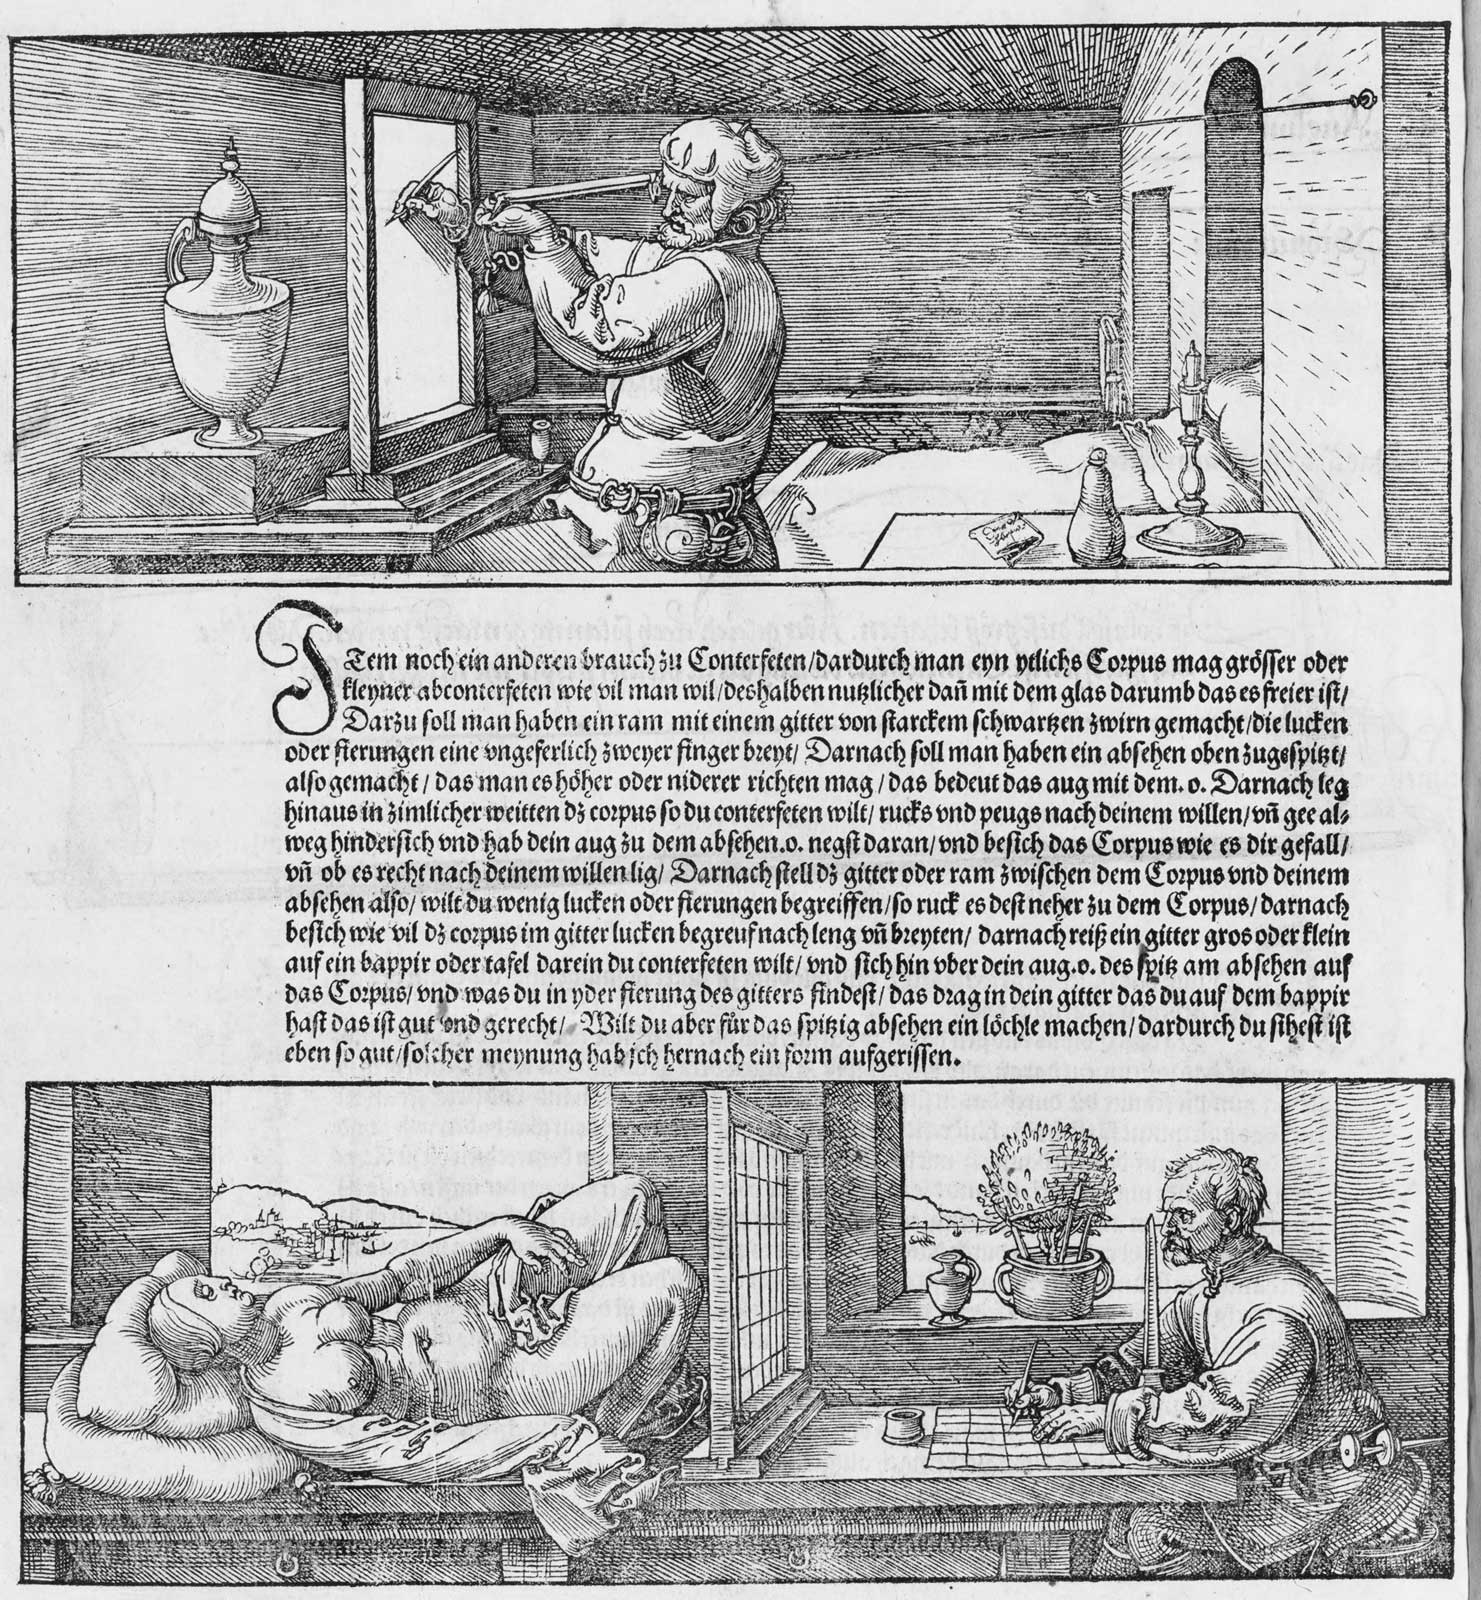 ITem noch ein anderen brauch zu Conterfeten/dardurch man eyn ytlichs Corpus mag grösser oder
kleyner abconterfeten wie vil man wil/deshalben nutzlicher dañ mit dem glas darumb das es freier ist/
Darzu soll man haben ein ram mit einem gitter von starckem schwartzen zwirn gemacht/die lucken
oder fierungen eine vngeferlich zweyer finger breyt/ Darnach soll man haben ein absehen oben zugespitzt/
also gemacht/ das man es höher oder niderer richten mag/das bedeut das aug mit dem .o. Darnach leg
hinaus in zimlicher weitten dz corpus so du conterfeten wilt/ rucks vnd peugs nach deinem willen/vñ gee al⸗
weg hindersich vnd hab dein aug zu dem absehen .o. negst daran/vnd besich das Corpus wie es dir gefall/
vñ ob es recht nach deinem willen lig/ Darnach stell dz gitter oder ram zwischen dem Corpus vnd deinem
absehen also/ wilt du wenig lucken oder fierungen begreiffen/so ruck es dest neher zu dem Corpus/darnach
besich wie vil dz corpus im gitter lucken begreuf nach leng vñ breyten/ darnach reiß ein gitter gros oder klein
auf ein bappir oder tafel darein du conterfeten wilt/ vnd sich hin vber dein aug .o. des spitz am absehen auf
das Corpus/ vnd was du in yder fierung des gitters findest/das drag in dein gitter das du auf dem bappir
hast das ist gut vnd gerecht/ Wilt du aber für das spitzig absehen ein löchle machen/dardurch du sihest ist
eben so gut/solcher meynung hab ich hernach ein form aufgerissen.